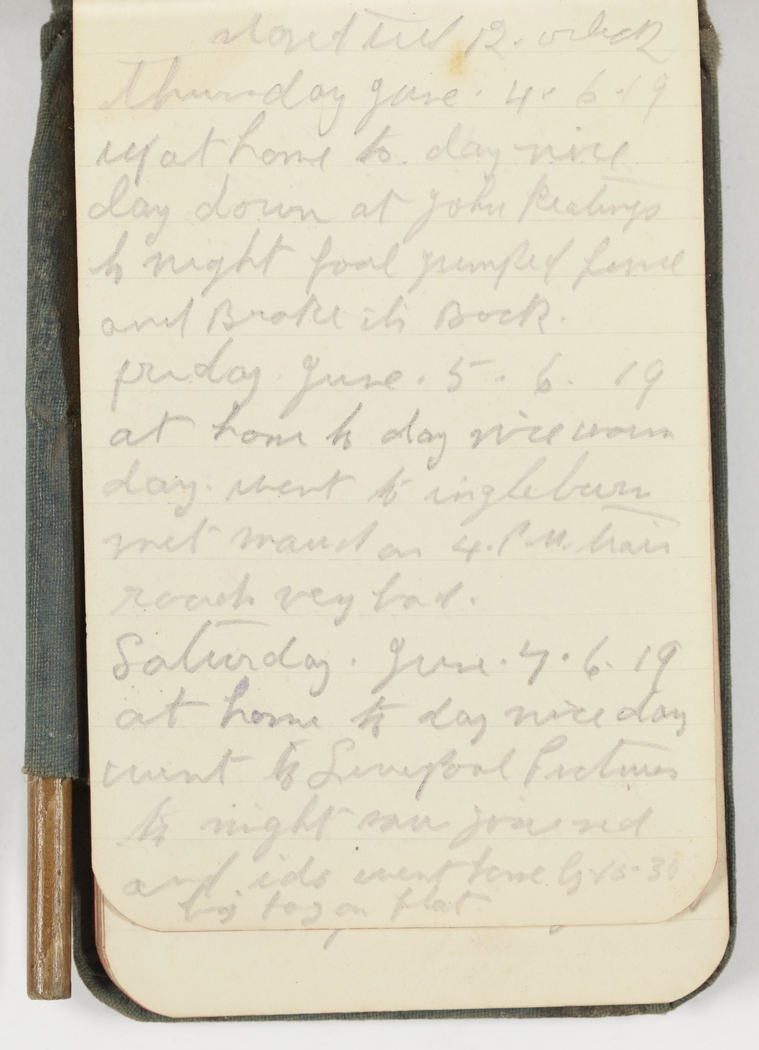 stoped till 12. oclock
Thursday June. 4. 6. 19
up at home to. day nice
day down at John Keatings
to night foal jumped fence
and Broke its Back.
friday. June. 5. 6. 19
at home to day nice warm
day. went to ingleburn
met maud on 4. P.M. train
roads very bad.
Saturday. June. 7. 6. 19
at home to day nice day
went to Liverpool Pictures
to night saw
and went home 10.30
big fog on flat